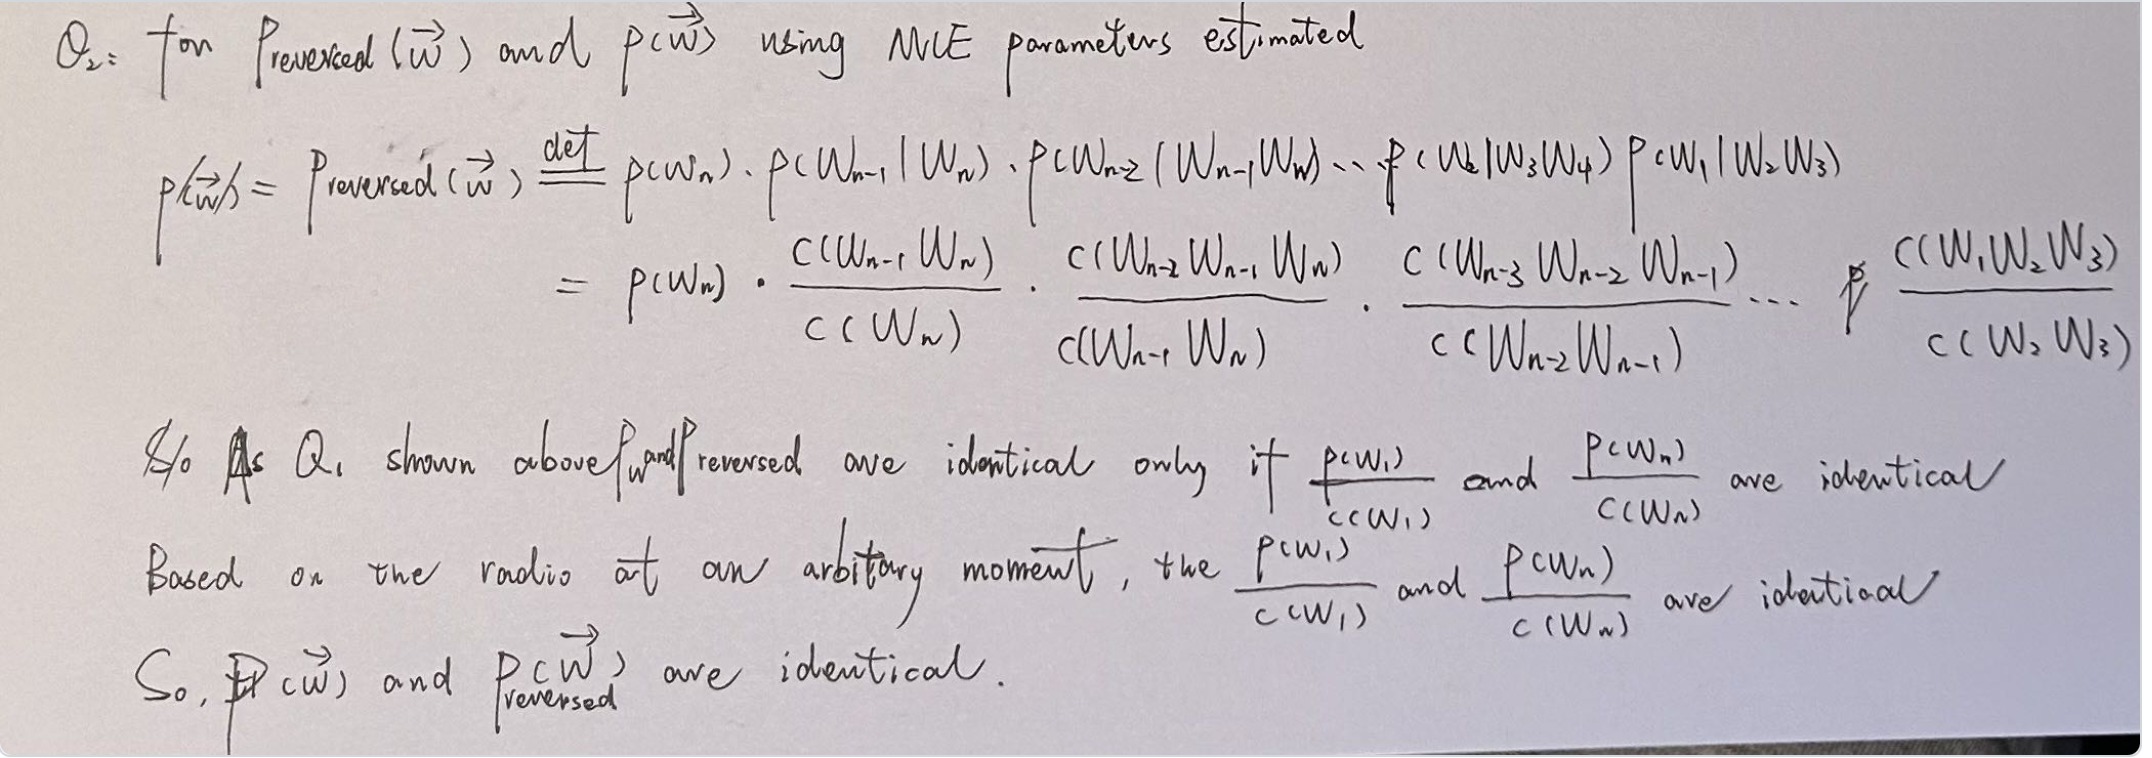 Q₂: for P_reversed(w⃗) and p(w⃗) using MLE parameters estimated
p(w⃗) = P_reversed(w⃗) def= p(Wₙ)·p(Wₙ₋₁|Wₙ)·p(Wₙ₋₂(Wₙ₋₁Wₙ)...p(W₂|W₃W₄)p(W₁|W₂W₃)
= p(Wₙ) · C(Wₙ₋₁Wₙ)/C(Wₙ) · C(Wₙ₋₂Wₙ₋₁Wₙ)/C(Wₙ₋₁Wₙ) · C(Wₙ₋₃Wₙ₋₂Wₙ₋₁)/C(Wₙ₋₂Wₙ₋₁) ... C(W₁W₂W₃)/C(W₂W₃)
As Q₁ shown above P_w and P_reversed are identical only if p(W₁)/C(W₁) and p(Wₙ)/C(Wₙ) are identical
Based on the radio at an arbitary moment, the p(W₁)/C(W₁) and p(Wₙ)/C(Wₙ) are identical
So, P(w⃗) and P_reversed(w⃗) are identical.